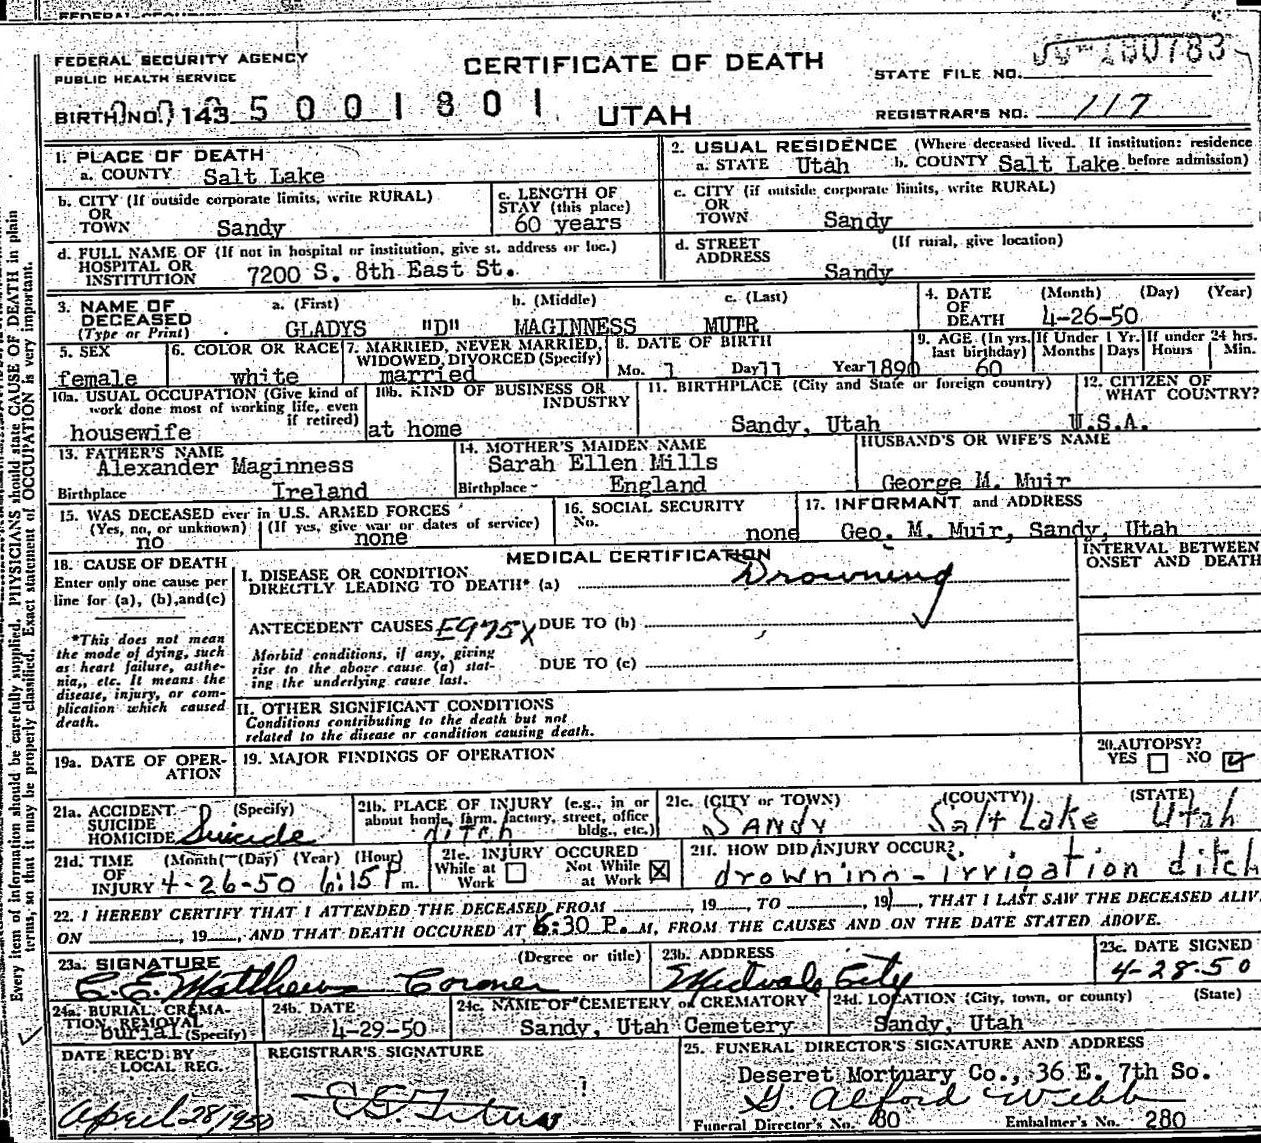 FEDERAL SECURITY AGENCY
PUBLIC HEALTH SERVICE
CERTIFICATE OF DEATH
UTAH
STATE FILE NO.
REGISTRAR'S NO. 117
BIRTH NO. 143 5 0 0 1 8 0 1
1. PLACE OF DEATH
a. COUNTY Salt Lake
2. USUAL RESIDENCE (Where deceased lived. If institution: residence before admission)
a. STATE Utah b. COUNTY Salt Lake
b. CITY (If outside corporate limits, write RURAL)
OR
TOWN Sandy
c. LENGTH OF STAY (this place)
60 years
c. CITY (if outside corporate limits, write RURAL)
OR
TOWN Sandy
d. FULL NAME OF (If not in hospital or institution, give st. address or loc.)
HOSPITAL OR
INSTITUTION 7200 S. 8th East St.
d. STREET (If rural, give location)
ADDRESS Sandy
3. NAME OF DECEASED
(Type or Print)
a. (First) b. (Middle) c. (Last)
GLADYS "D" MAGINNESS MUIR
4. DATE OF DEATH (Month) (Day) (Year)
4-26-50
5. SEX
female
6. COLOR OR RACE
white
7. MARRIED, NEVER MARRIED, WIDOWED, DIVORCED (Specify)
married
8. DATE OF BIRTH
Mo. 1 Day 11 Year 1890
9. AGE (In yrs. last birthday)
60
If Under 1 Yr. Months Days
If under 24 hrs. Hours Min.
10a. USUAL OCCUPATION (Give kind of work done most of working life, even if retired)
housewife
10b. KIND OF BUSINESS OR INDUSTRY
at home
11. BIRTHPLACE (City and State or foreign country)
Sandy, Utah
12. CITIZEN OF WHAT COUNTRY?
U.S.A.
13. FATHER'S NAME
Alexander Maginness
Birthplace Ireland
14. MOTHER'S MAIDEN NAME
Sarah Ellen Mills
Birthplace England
HUSBAND'S OR WIFE'S NAME
George M. Muir
15. WAS DECEASED ever in U.S. ARMED FORCES
(Yes, no, or unknown) (If yes, give war or dates of service)
no none
16. SOCIAL SECURITY No.
none
17. INFORMANT and ADDRESS
Geo. M. Muir, Sandy, Utah
18. CAUSE OF DEATH
Enter only one cause per line for (a), (b), and (c)
*This does not mean the mode of dying, such as heart failure, asthenia,, etc. It means the disease, injury, or complication which caused death.
MEDICAL CERTIFICATION
I. DISEASE OR CONDITION
DIRECTLY LEADING TO DEATH* (a) Drowning
ANTECEDENT CAUSES E975X DUE TO (b)
Morbid conditions, if any, giving rise to the above cause (a) stating the underlying cause last.
DUE TO (c)
INTERVAL BETWEEN ONSET AND DEATH
II. OTHER SIGNIFICANT CONDITIONS
Conditions contributing to the death but not related to the disease or condition causing death.
19a. DATE OF OPERATION
19. MAJOR FINDINGS OF OPERATION
20. AUTOPSY?
YES NO
21a. ACCIDENT SUICIDE HOMICIDE (Specify)
Suicide
21b. PLACE OF INJURY (e.g., in or about home, farm, factory, street, office bldg., etc.)
ditch
21c. (CITY or TOWN) (COUNTY) (STATE)
SANDY Salt Lake Utah
21d. TIME OF INJURY (Month) (Day) (Year) (Hour)
4-26-50 6:15 P m.
21e. INJURY OCCURED
While at Work Not While at Work
21f. HOW DID INJURY OCCUR?
drowning - irrigation ditch
22. I HEREBY CERTIFY THAT I ATTENDED THE DECEASED FROM , 19 TO , 19 , THAT I LAST SAW THE DECEASED ALIVE
ON , 19 , AND THAT DEATH OCCURED AT 6:30 P. M, FROM THE CAUSES AND ON THE DATE STATED ABOVE.
23a. SIGNATURE (Degree or title)
C.E. Matthews Coroner
23b. ADDRESS
Midvale City
23c. DATE SIGNED
4-28-50
24a. BURIAL, CREMATION, REMOVAL (Specify)
burial
24b. DATE
4-29-50
24c. NAME OF CEMETERY or CREMATORY
Sandy, Utah Cemetery
24d. LOCATION (City, town, or county) (State)
Sandy, Utah
DATE REC'D BY LOCAL REG.
April 28/1950
REGISTRAR'S SIGNATURE
25. FUNERAL DIRECTOR'S SIGNATURE AND ADDRESS
Deseret Mortuary Co., 36 E. 7th So.
G. Alford Webb
Funeral Director's No. 80 Embalmer's No. 280
Every item of information should be carefully supplied. PHYSICIANS should state CAUSE OF DEATH in plain
terms, so that it may be properly classified. Exact statement of OCCUPATION is very important.